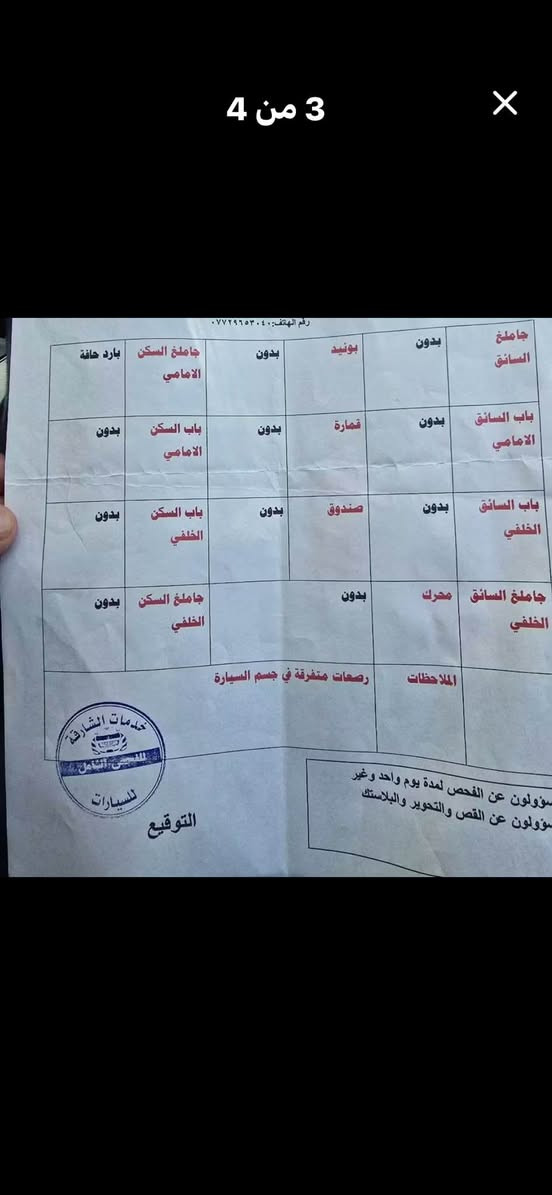 3 من 4
رقم الهاتف: ٠٧٧٢٩٦٥٣٠٤٠
جاملغ السائق
بدون
بونيد
بدون
جاملغ السكن الامامي
بارد حافة
باب السائق الامامي
بدون
قمارة
بدون
باب السكن الامامي
بدون
باب السائق الخلفي
بدون
صندوق
بدون
باب السكن الخلفي
بدون
جاملغ السائق الخلفي
محرك
بدون
جاملغ السكن الخلفي
بدون
الملاحظات
رصعات متفرقة في جسم السيارة
سؤولون عن الفحص لمدة يوم واحد وغير
سؤولون عن القص والتحوير والبلاستك
خدمات الشارقة
للفحص الشامل
للسيارات
التوقيع